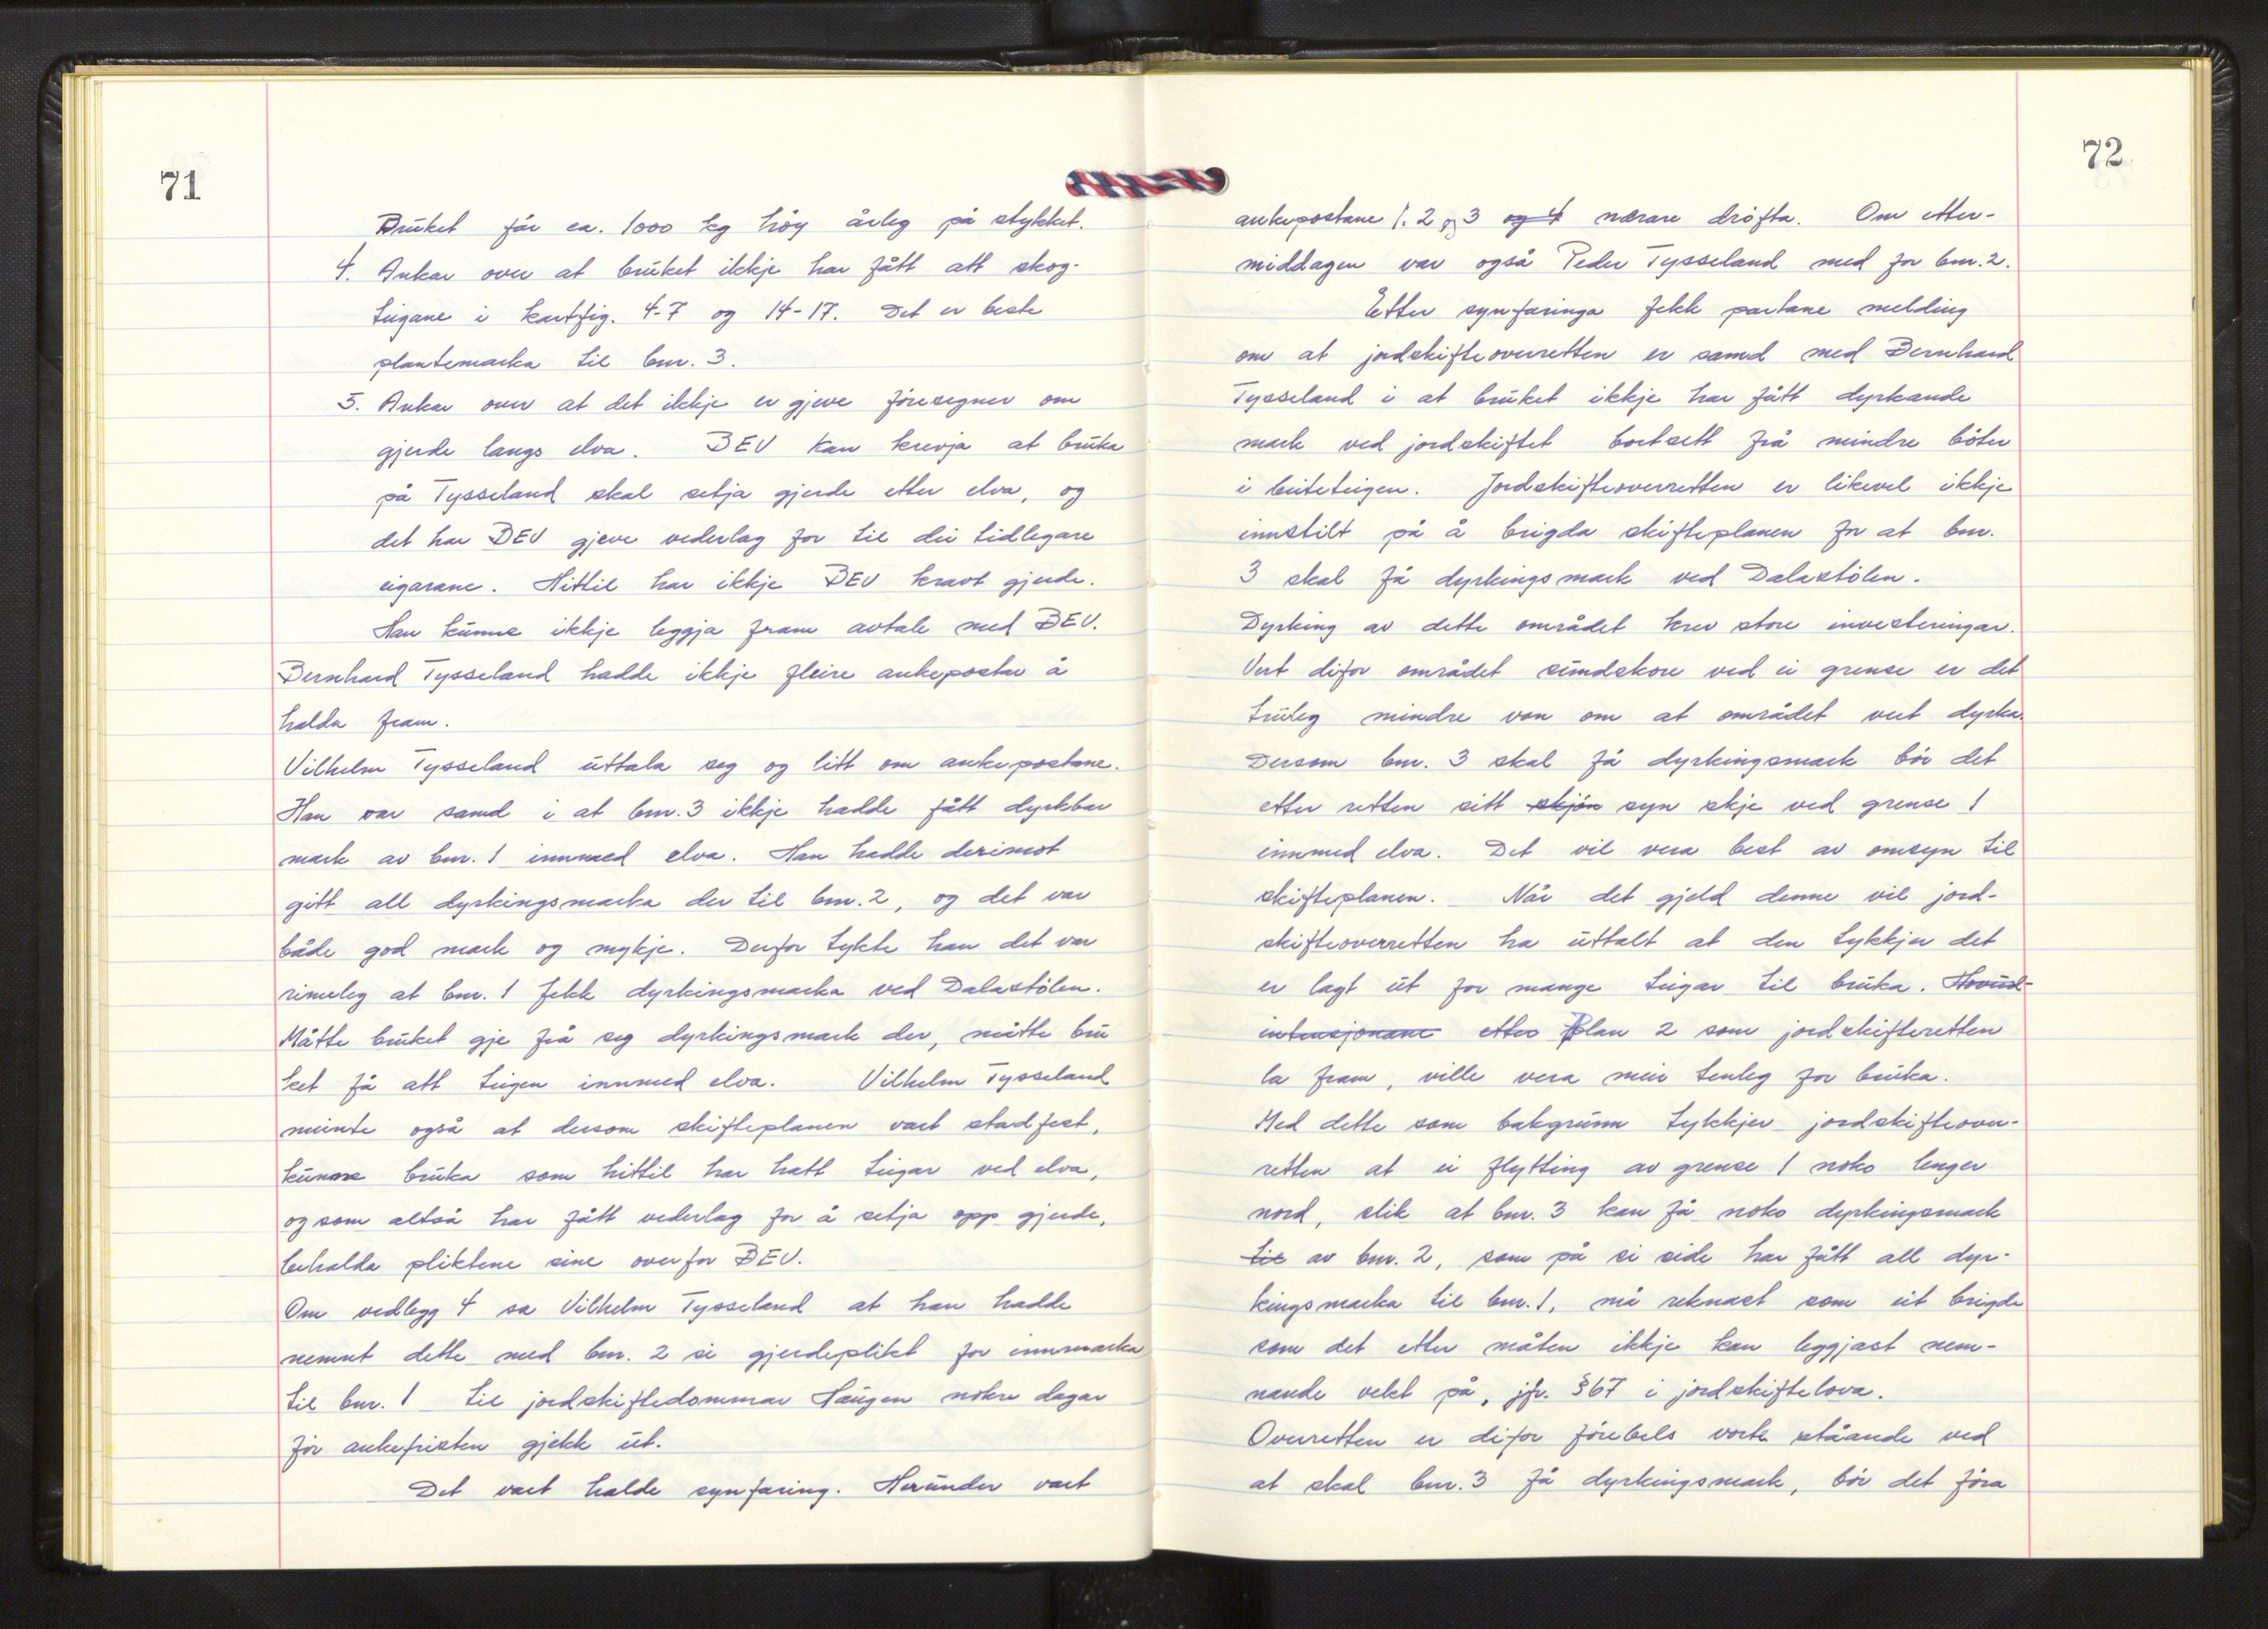 71
Bruket får ca. 1000 kg höy årleg på stykket.
4. Ankar over at bruket ikkje har fått att skog-
teigane i kartfig. 4-7 og 14-17. Det er beste
plantemarka til bnr. 3.
5. Ankar over at det ikkje er gjeve föresegner om
gjerde langs elva. BEV kan krevja at bruka
på Tysseland skal setja gjerde etter elva, og
det har BEV gjeve vederlag for til dei tidlegare
eigarane. Hittil har ikkje BEV kravt gjerde.
Han kunne ikkje leggja fram avtale med BEV.
Bernhard Tysseland hadde ikkje fleire ankepostar å
halda fram.
Vilhelm Tysseland uttala seg og litt om ankepostane.
Han var samd i at bnr. 3 ikkje hadde fått dyrkbar
mark av bnr. 1 innmed elva. Han hadde derimot
gitt all dyrkingsmarka der til bnr. 2, og det var
både god mark og mykje. Derfor tykte han det var
rimeleg at bnr. 1 fekk dyrkingsmarka ved Dalastölen.
Måtte bruket gje frå seg dyrkingsmark der, måtte bru
ket få att teigen innmed elva. Vilhelm Tysseland
meinte også at dersom skifteplanen vart stadfest,
kunne bruka som hittil har hatt teigar ved elva,
og som altså har fått vederlag for å setja opp gjerde,
behalda pliktene sine overfor BEV.
Om vedlegg 4 sa Vilhelm Tysseland at han hadde
nemnt dette med bnr. 2 si gjerdeplikt for innmarka
til bnr. 1 til jordskiftedommar Haugen nokre dagar
för ankefristen gjekk ut.
Det vart halde synfaring. Herunder vart
72
ankepostane 1. 2 og 3 og 4 nærare dröfta. Om etter-
middagen var også Peder Tysseland med for bnr. 2.
Etter synfaringa fekk partane melding
om at jordskifteoverretten er samd med Bernhard
Tysseland i at bruket ikkje har fått dyrkande
mark ved jordskiftet bortsett frå mindre böter
i beiteteigen. Jordskifteoverretten er likevel ikkje
innstilt på å brigda skifteplanen for at bnr.
3 skal få dyrkingsmark ved Dalastölen.
Dyrking av dette området krev store investeringar.
Vert difor området sundskore ved ei grense er det
truleg mindre von om at området vert dyrka.
Dersom bnr. 3 skal få dyrkingsmark bör det
etter retten sitt skjön syn skje ved grense 1
innmed elva. Det vil vera best av omsyn til
skifteplanen. Når det gjeld denne vil jord-
skifteoverretten ha uttalt at den tykkjer det
er lagt ut for mange teigar til bruka. Hovud-
intensjonane etter Plan 2 som jordskifteretten
la fram, ville vera meir tenleg for bruka.
Med dette som bakgrunn tykkjer jordskifteover-
retten at ei flytting av grense 1 noko lenger
nord, slik at bnr. 3 kan få noko dyrkingsmark
til av bnr. 2, som på si side har fått all dyr-
kingsmarka til bnr. 1, må reknast som eit brigde
som det etter måten ikkje kan leggjast nem-
nande vekt på, jfr. §67 i jordskiftelova.
Overretten er difor förebels vorte ståande ved
at skal bnr. 3 få dyrkingsmark, bör det föra